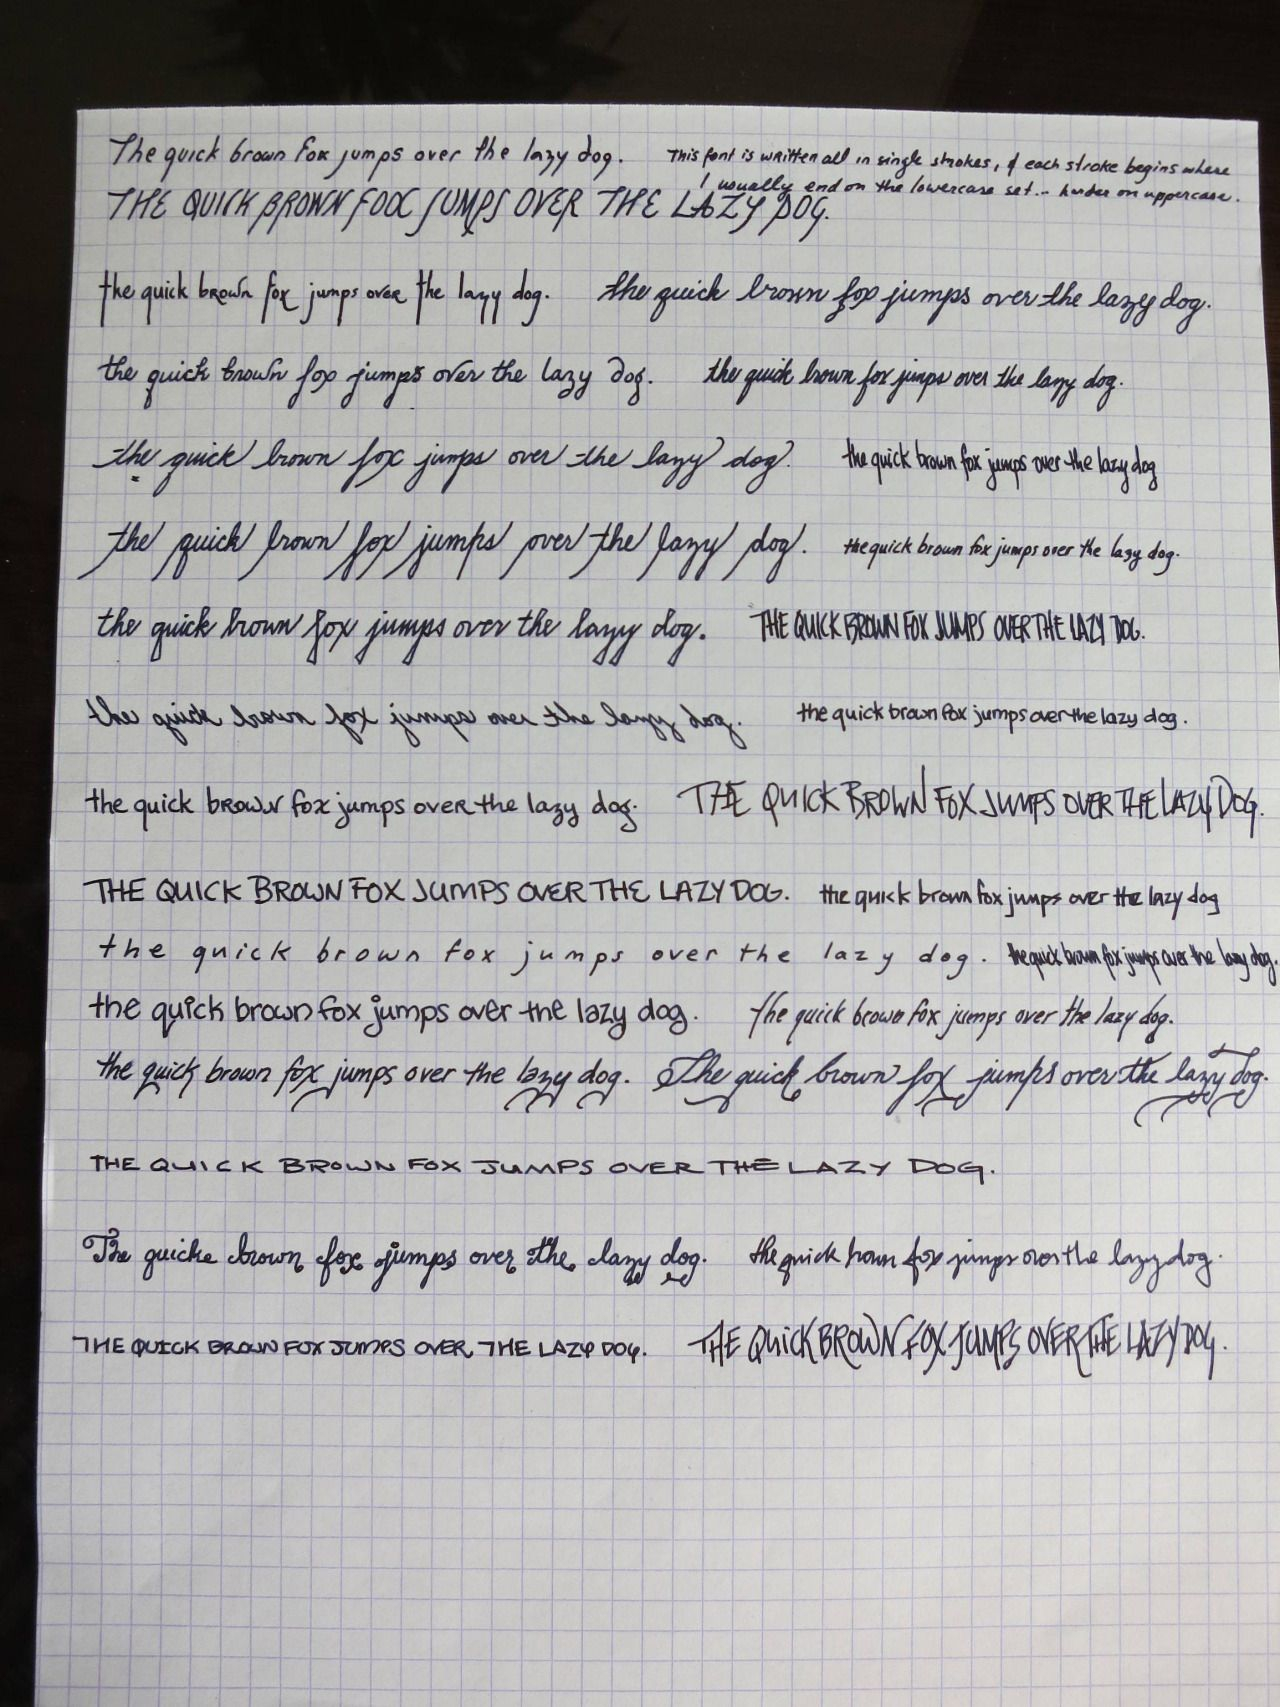 The quick brown fox jumps over the lazy dog.
This font is written all in single strokes, & each stroke begins where
I usually end on the lowercase set... harder on uppercase.
THE QUICK BROWN FOX JUMPS OVER THE LAZY DOG.
the quick brown fox jumps over the lazy dog.
the quick brown fox jumps over the lazy dog.
the quick brown fox jumps over the lazy dog.
the quick brown fox jumps over the lazy dog.
the quick brown fox jumps over the lazy dog.
the quick brown fox jumps over the lazy dog
the quick brown fox jumps over the lazy dog.
the quick brown fox jumps over the lazy dog.
the quick brown fox jumps over the lazy dog.
THE QUICK BROWN FOX JUMPS OVER THE LAZY DOG.
the quick brown fox jumps over the lazy dog.
the quick brown fox jumps over the lazy dog.
the quick brown fox jumps over the lazy dog.
THE QUICK BROWN FOX JUMPS OVER THE LAZY DOG.
THE QUICK BROWN FOX JUMPS OVER THE LAZY DOG.
the quick brown fox jumps over the lazy dog
the quick brown fox jumps over the lazy dog.
the quick brown fox jumps over the lazy dog.
the quick brown fox jumps over the lazy dog.
the quick brown fox jumps over the lazy dog.
the quick brown fox jumps over the lazy dog.
The quick brown fox jumps over the lazy dog.
THE QUICK BROWN FOX JUMPS OVER THE LAZY DOG.
The quick brown fox jumps over the lazy dog.
the quick brown fox jumps over the lazy dog.
THE QUICK BROWN FOX JUMPS OVER THE LAZY DOG.
THE QUiCK BROWN FOX JUMPS OVER THE LAZY DOG.